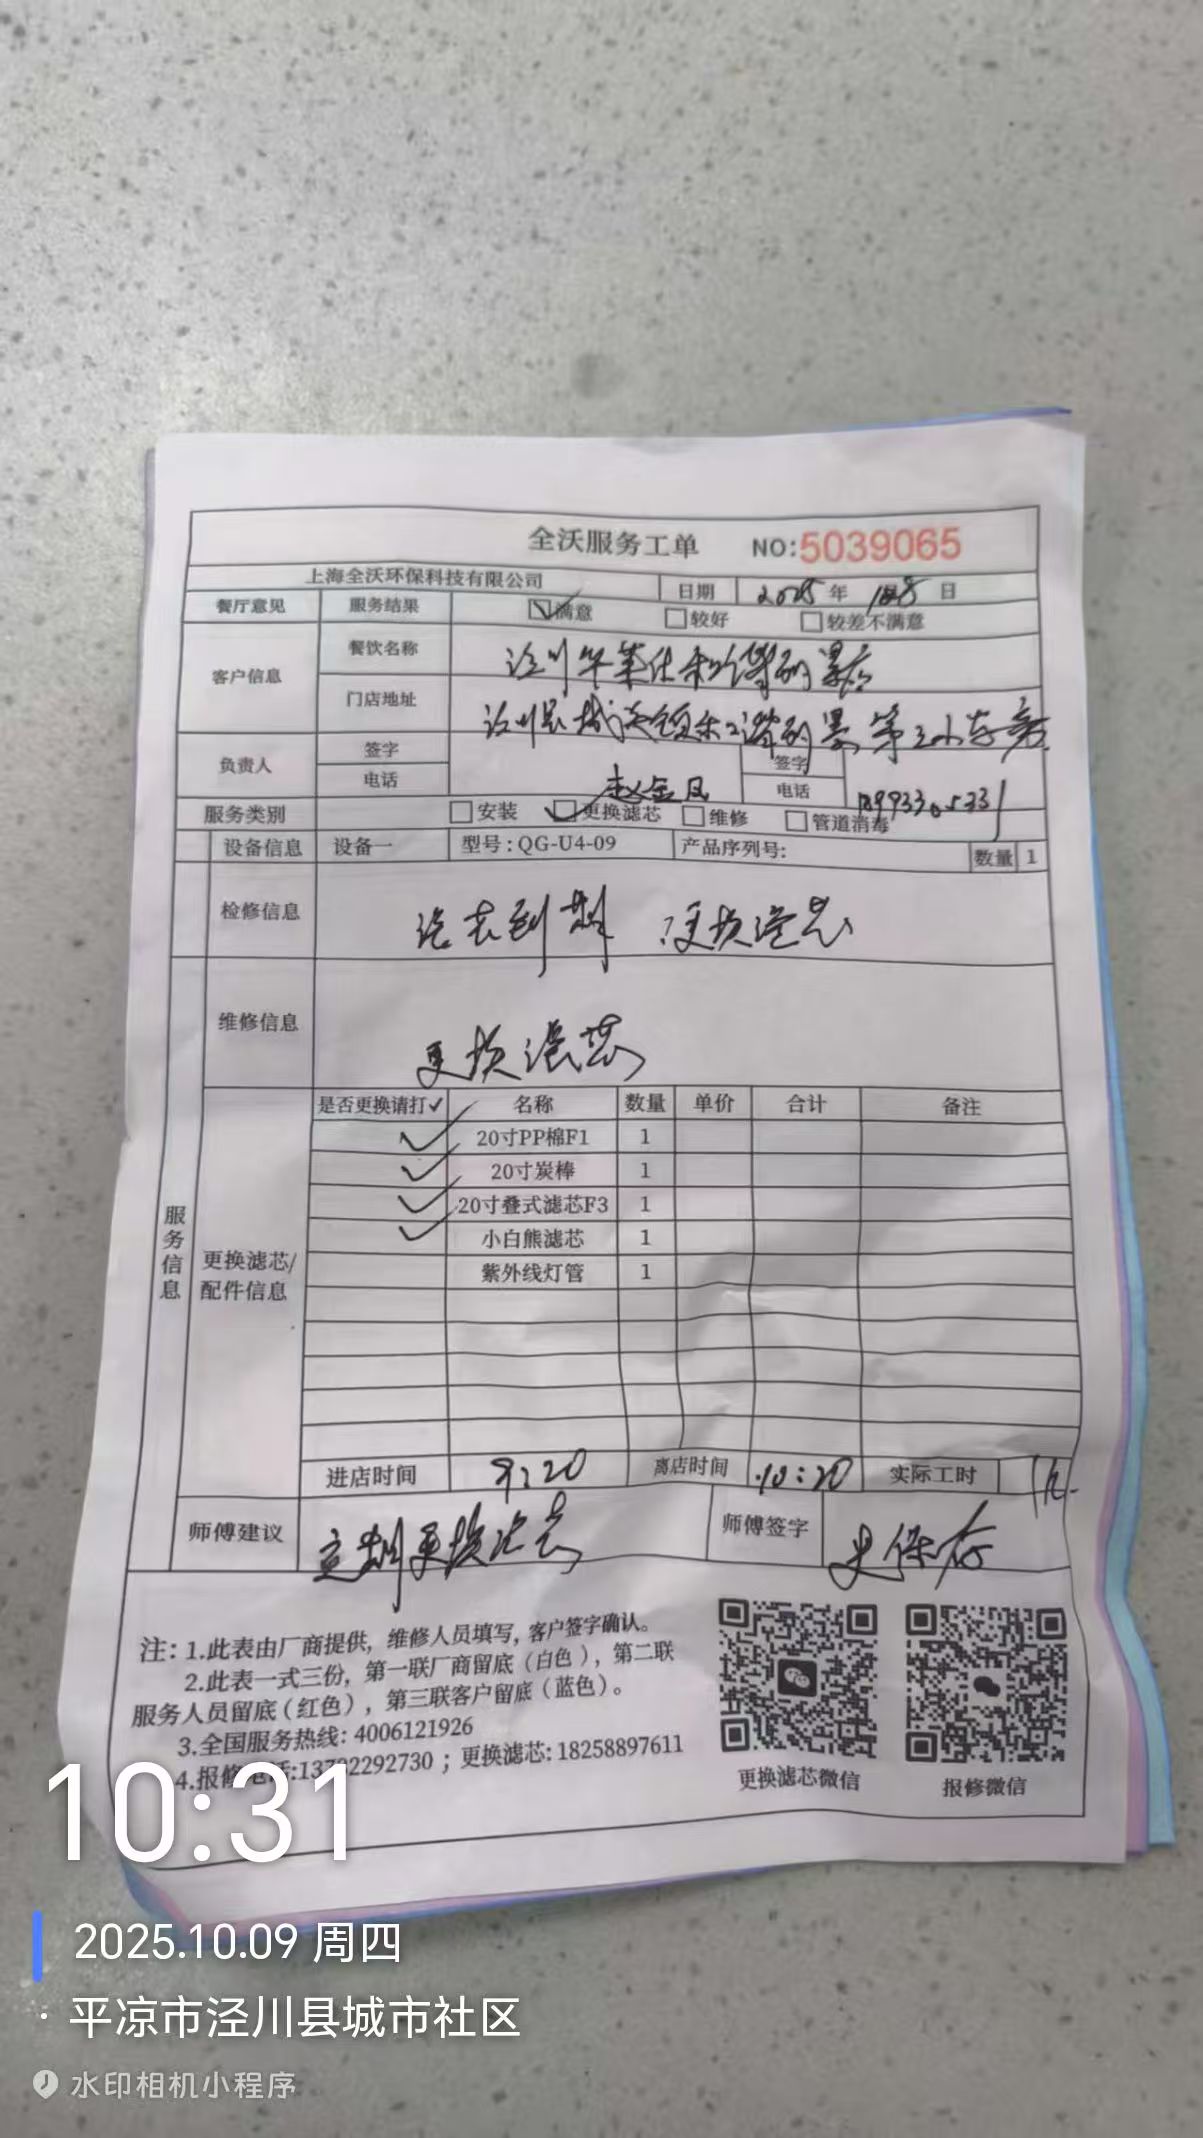 全沃服务工单 NO:5039065
上海全沃环保科技有限公司 日期 2025年 日
餐厅意见 服务结果 满意 较好 较差不满意
客户信息 餐饮名称 泾川
门店地址 泾川县
负责人 签字 赵金凤 签字
电话 电话
服务类别 安装 更换滤芯 维修 管道消毒
设备信息 设备一 型号:QG-U4-09 产品序列号: 数量 1
检修信息 滤芯到期 更换滤芯
维修信息 更换滤芯
服务信息
更换滤芯/配件信息
是否更换请打✓ 名称 数量 单价 合计 备注
✓ 20寸PP棉F1 1
✓ 20寸炭棒 1
✓ 20寸叠式滤芯F3 1
✓ 小白熊滤芯 1
紫外线灯管 1
进店时间 9:20 离店时间 10:20 实际工时 1h.
师傅建议 定期更换滤芯 师傅签字 史保存
注:1.此表由厂商提供,维修人员填写,客户签字确认。
2.此表一式三份,第一联厂商留底(白色),第二联
服务人员留底(红色),第三联客户留底(蓝色)。
3.全国服务热线:4006121926
4.报修电话: ;更换滤芯:18258897611
更换滤芯微信 报修微信
10:31
2025.10.09 周四
平凉市泾川县城市社区
水印相机小程序